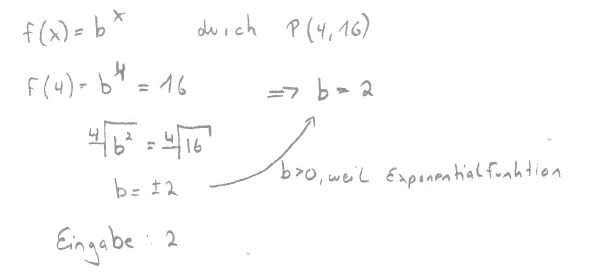 f(x) = b^x durch P(4,16)
f(4) = b^4 = 16 => b = 2
∜b² = ∜16
b = ±2 b>0, weil Exponentialfunktion
Eingabe: 2